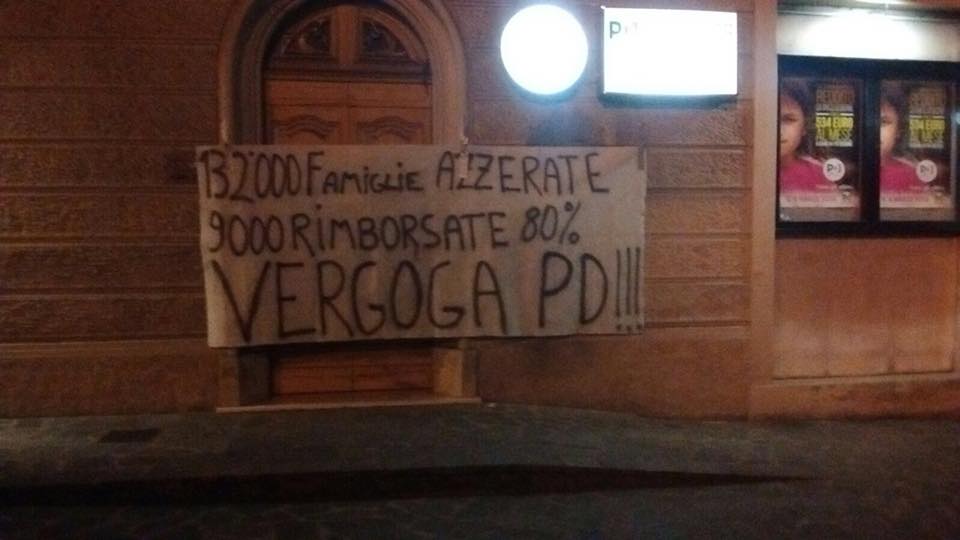 132'000 FAMIGLIE AZZERATE
9000 RIMBORSATE 80%
VERGOGA PD!!!
534 EURO
AL MESE